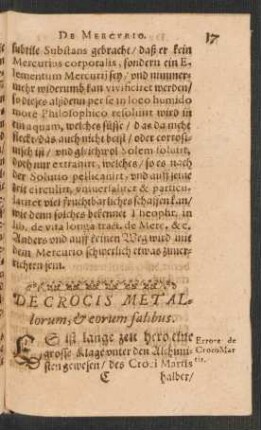 DE MERCVRIO. 17
subtile Substans gebracht/ daß er kein
Mercurius corporalis, sondern ein E-
lementum Mercurij sey/ vnd nimmer-
mehr widerumb kan viuificiret werden/
so dieses alsdenn per se in loco humido
more Philosophico resoluirt wird in
ein aquam, welches süsse/ das da nicht
auch nicht / oder corrosi-
uisch ist/ vnd gleichwol Solem soluirt,
doch nur extrahirt, welches/ so es nach
der Solutio pellicanirt/ vnd auff seine
zeit circulirt, vniuersaliter & particu-
lariter viel fruchtbarliches schaffen kan/
wie denn solches bekennet Theophr. in
lib. de vita longa tract. de Merc. &c.
Anders vnd auff keinen Weg wird mit
dem Mercurio schwerlich etwas zuuer-
richten sein.
DE CROCIS METAL-
lorum, & eorum salibus.
ES ist lange zeit hero eine
grosse Klage vnter den Alchimi-
sten gewesen/ des Croci Martis
Errore de
Croco Mar-
tis.
C halber/